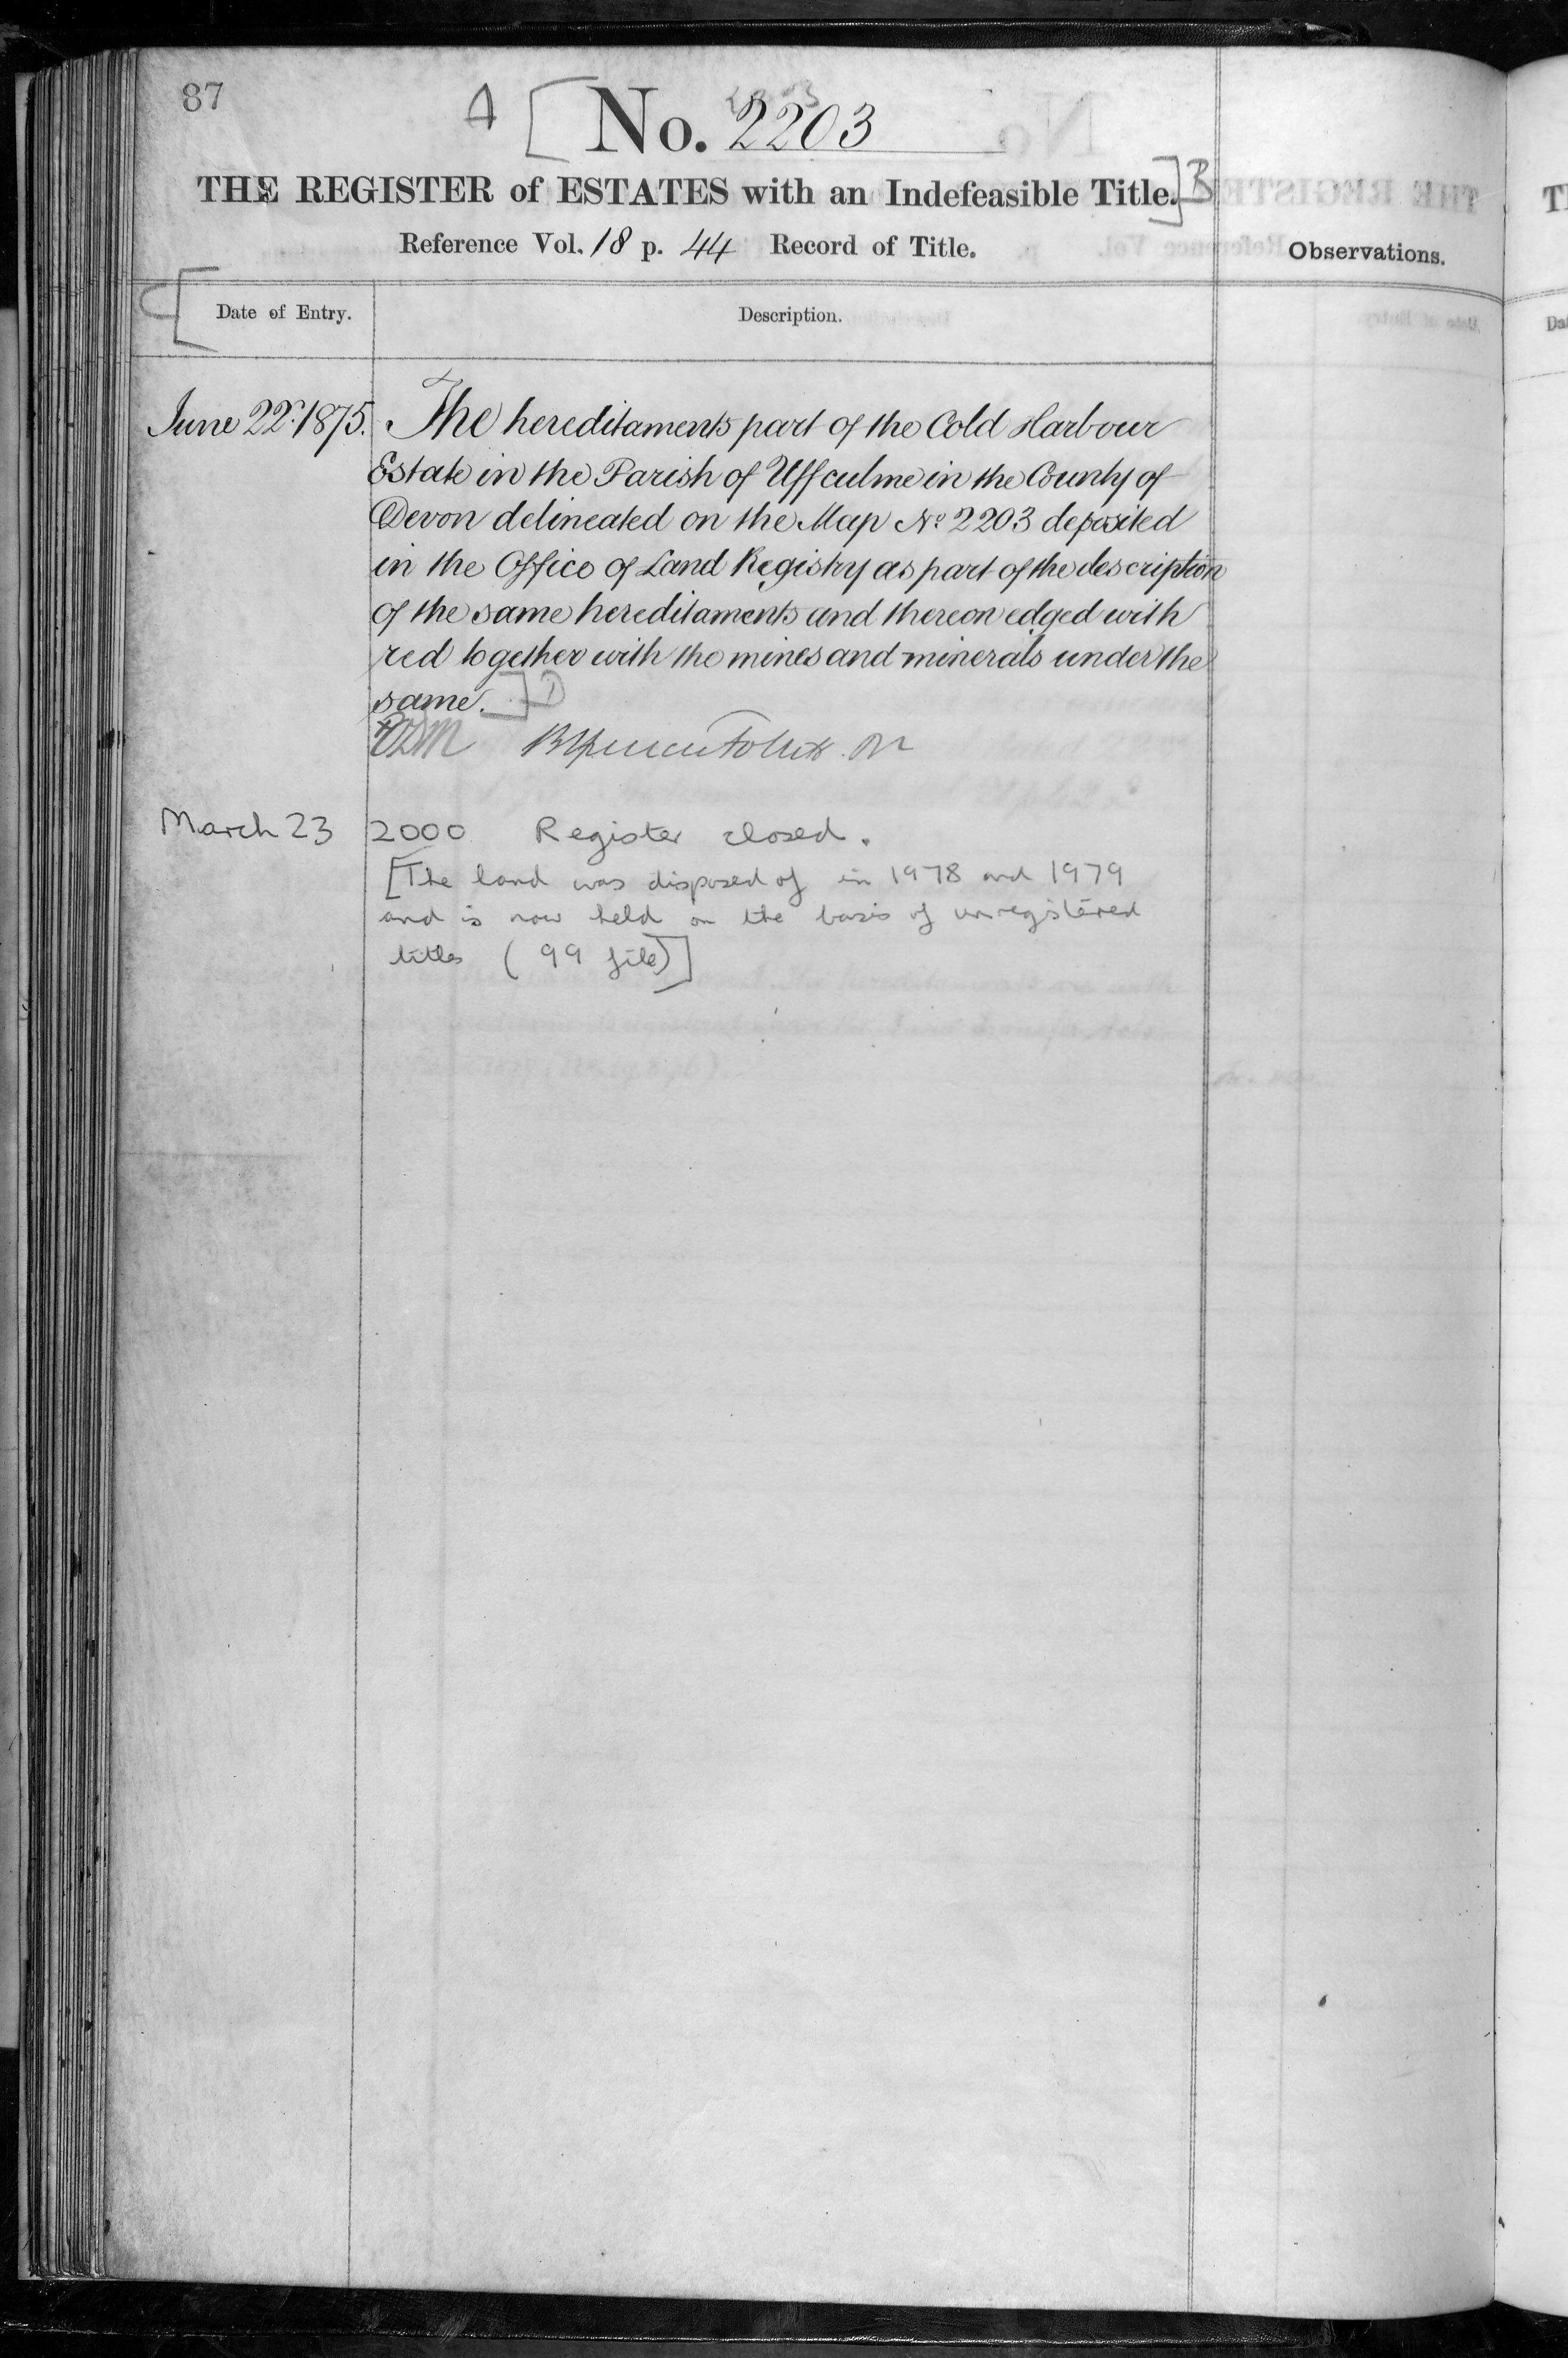 87
A [ No. 2203
THE REGISTER of ESTATES with an Indefeasible Title. ] B
Reference Vol. 18 p. 44 Record of Title.
Observations.
C [ Date of Entry.
Description.
June 22d. 1875. The hereditaments part of the Cold Harbour
Estate in the Parish of Uffculme in the County of
Devon delineated on the Map No 2203 deposited
in the Office of Land Registry as part of the description
of the same hereditaments and thereon edged with
red together with the mines and minerals under the
same. ] D
March 23 2000 Register closed.
[The land was disposed of in 1978 and 1979
and is now held on the basis of unregistered
titles (99 file)]